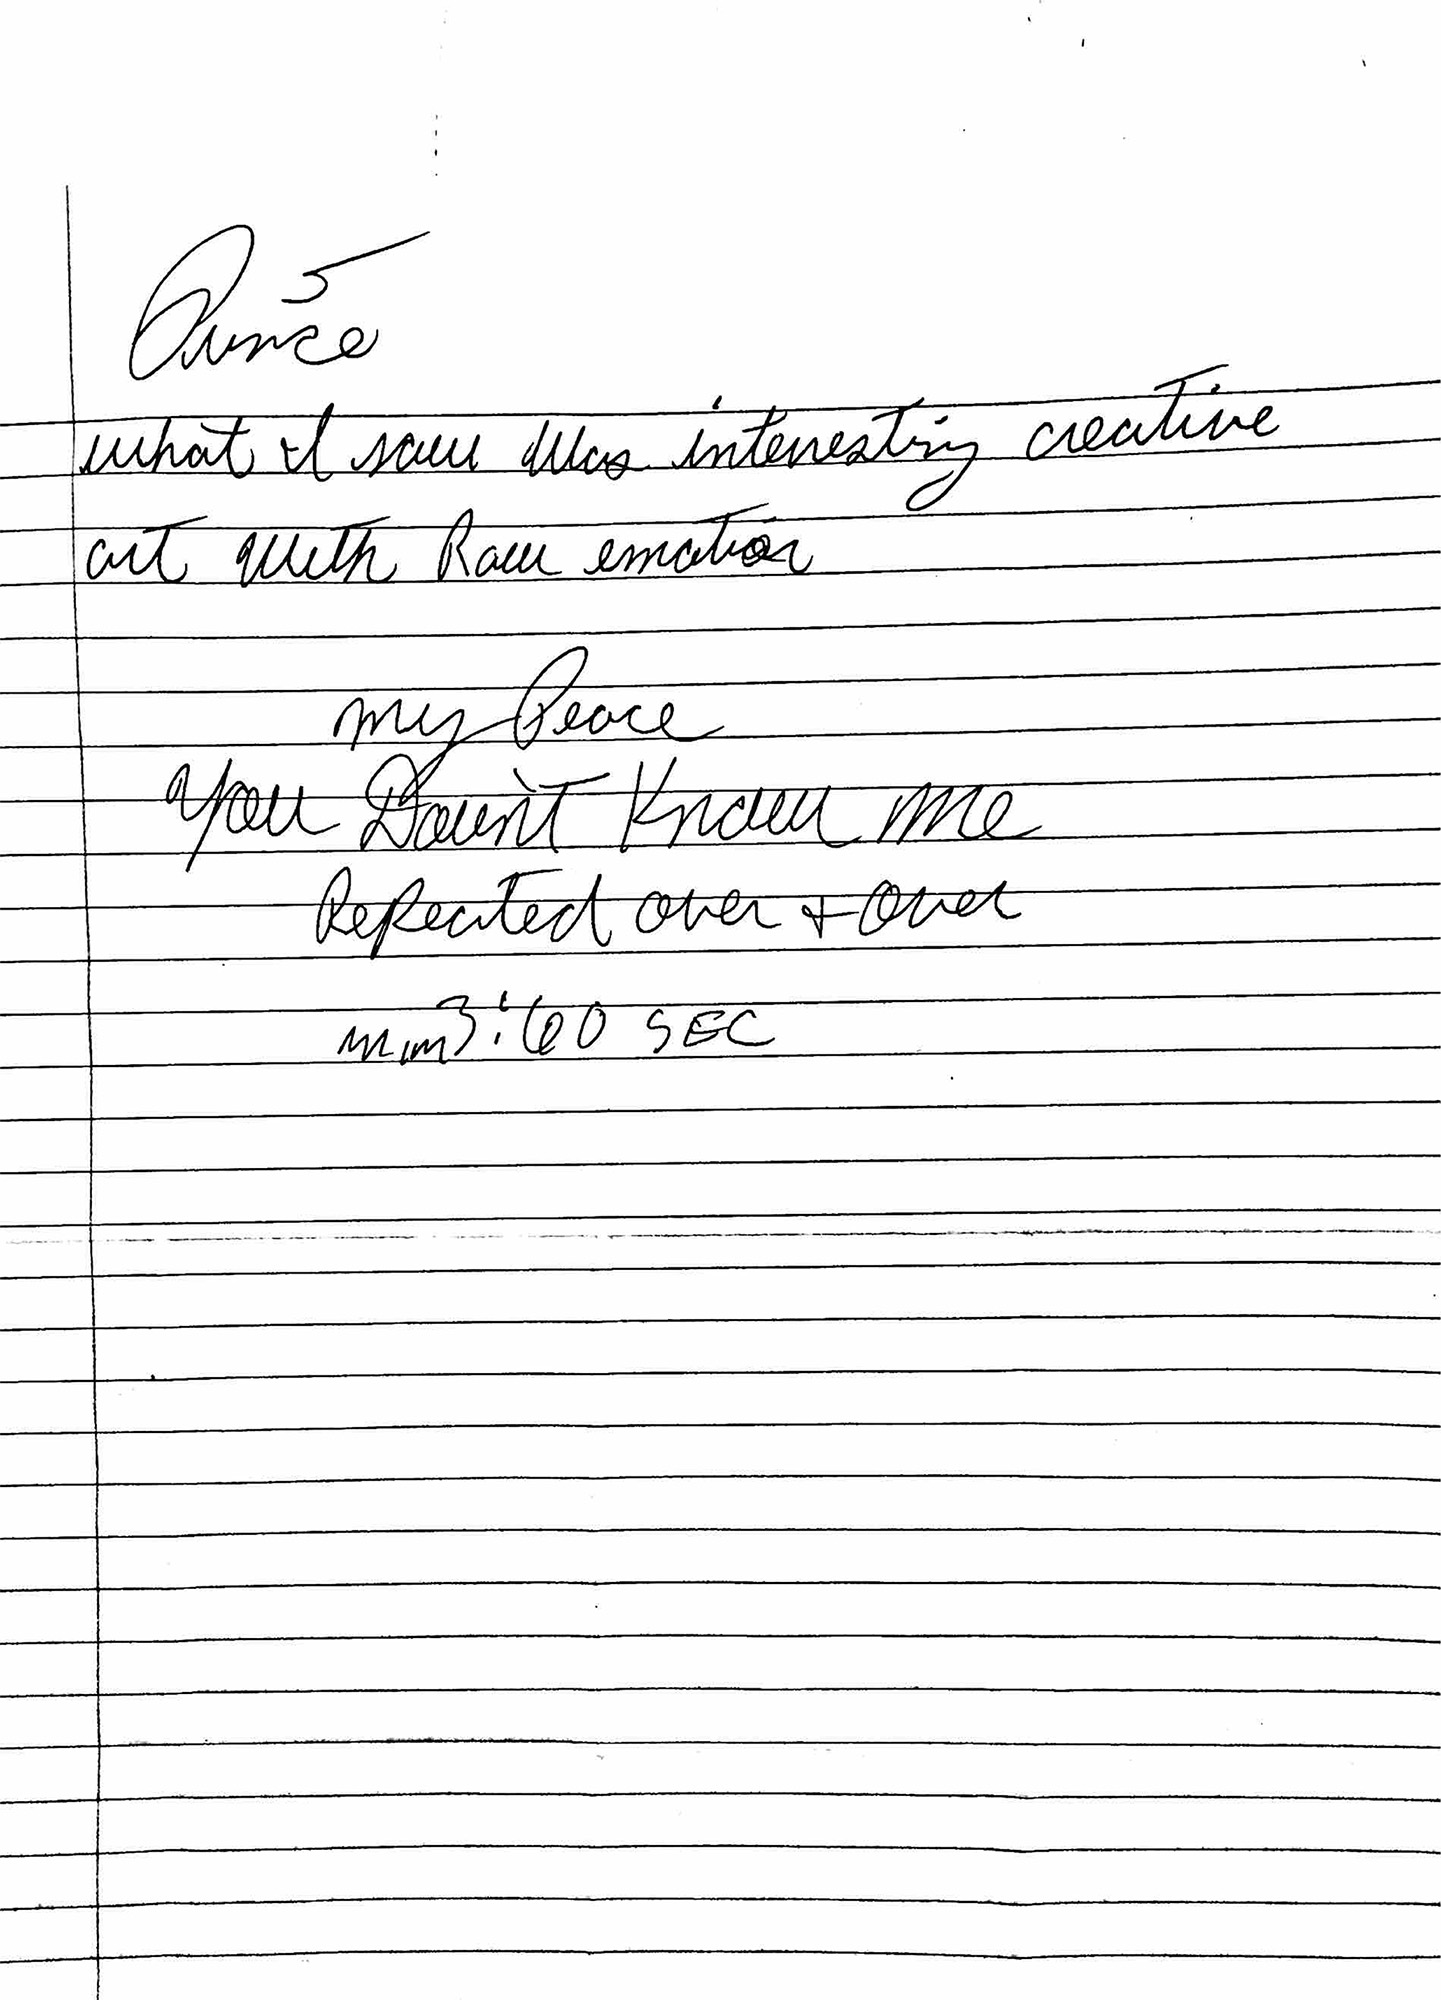 5
Prince
what I saw was interesting creative
art with Raw emotion
my Peace
You Doun't Know me
Repeated over + over
min 3:60 SEC